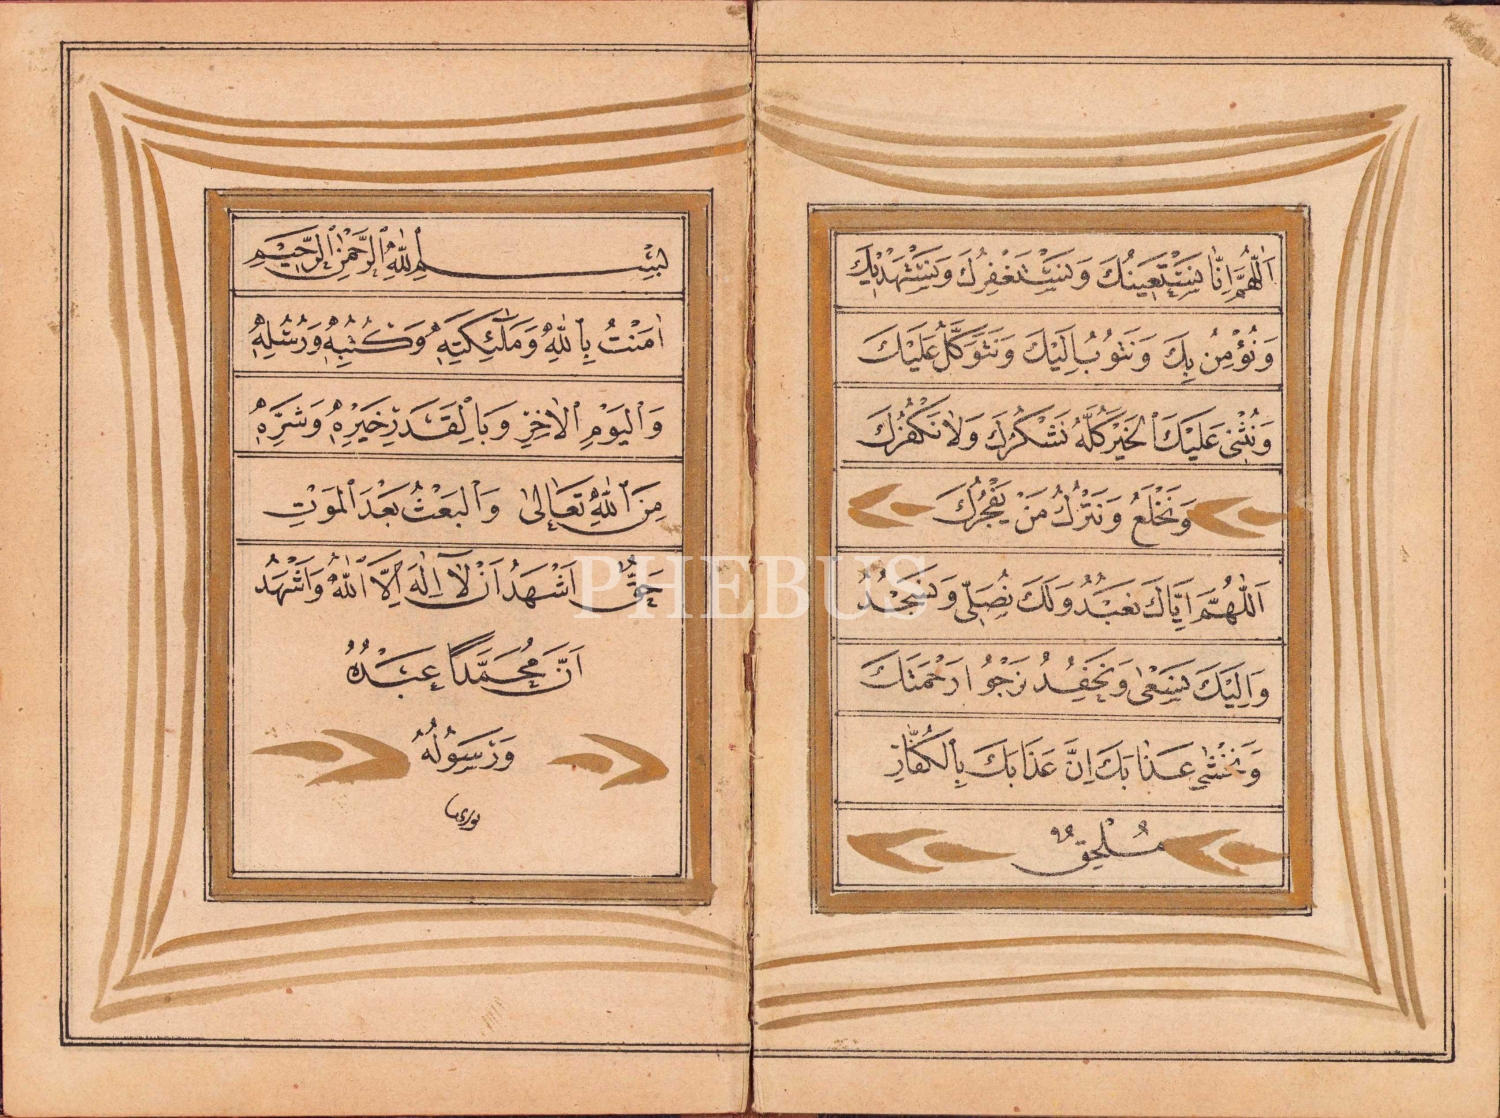 اَللّٰهُمَّ اِنَّا نَسْتَعِينُكَ وَنَسْتَغْفِرُكَ وَنَسْتَهْدِيكَ
وَنُؤْمِنُ بِكَ وَنَتُوبُ اِلَيْكَ وَنَتَوَكَّلُ عَلَيْكَ
وَنُثْنِى عَلَيْكَ الْخَيْرَ كُلَّهُ نَشْكُرُكَ وَلَا نَكْفُرُكَ
وَنَخْلَعُ وَنَتْرُكُ مَنْ يَفْجُرُكَ
اَللّٰهُمَّ اِيَّاكَ نَعْبُدُ وَلَكَ نُصَلِّى وَنَسْجُدُ
وَاِلَيْكَ نَسْعٰى وَنَحْفِدُ نَرْجُوا رَحْمَتَكَ
وَنَخْشٰى عَذَابَكَ اِنَّ عَذَابَكَ بِالْكُفَّارِ
مُلْحِقٌ
بِسْمِ اللّٰهِ الرَّحْمٰنِ الرَّحِيمِ
اٰمَنْتُ بِاللّٰهِ وَمَلٰٓئِكَتِهِ وَكُتُبِهِ وَرُسُلِهِ
وَالْيَوْمِ الْاٰخِرِ وَبِالْقَدَرِ خَيْرِهِ وَشَرِّهِ
مِنَ اللّٰهِ تَعَالٰى وَالْبَعْثُ بَعْدَ الْمَوْتِ
حَقٌّ اَشْهَدُ اَنْ لَٓا اِلٰهَ اِلَّا اللّٰهُ وَاَشْهَدُ
اَنَّ مُحَمَّدًا عَبْدُهُ
وَرَسُولُهُ
PHEBUS